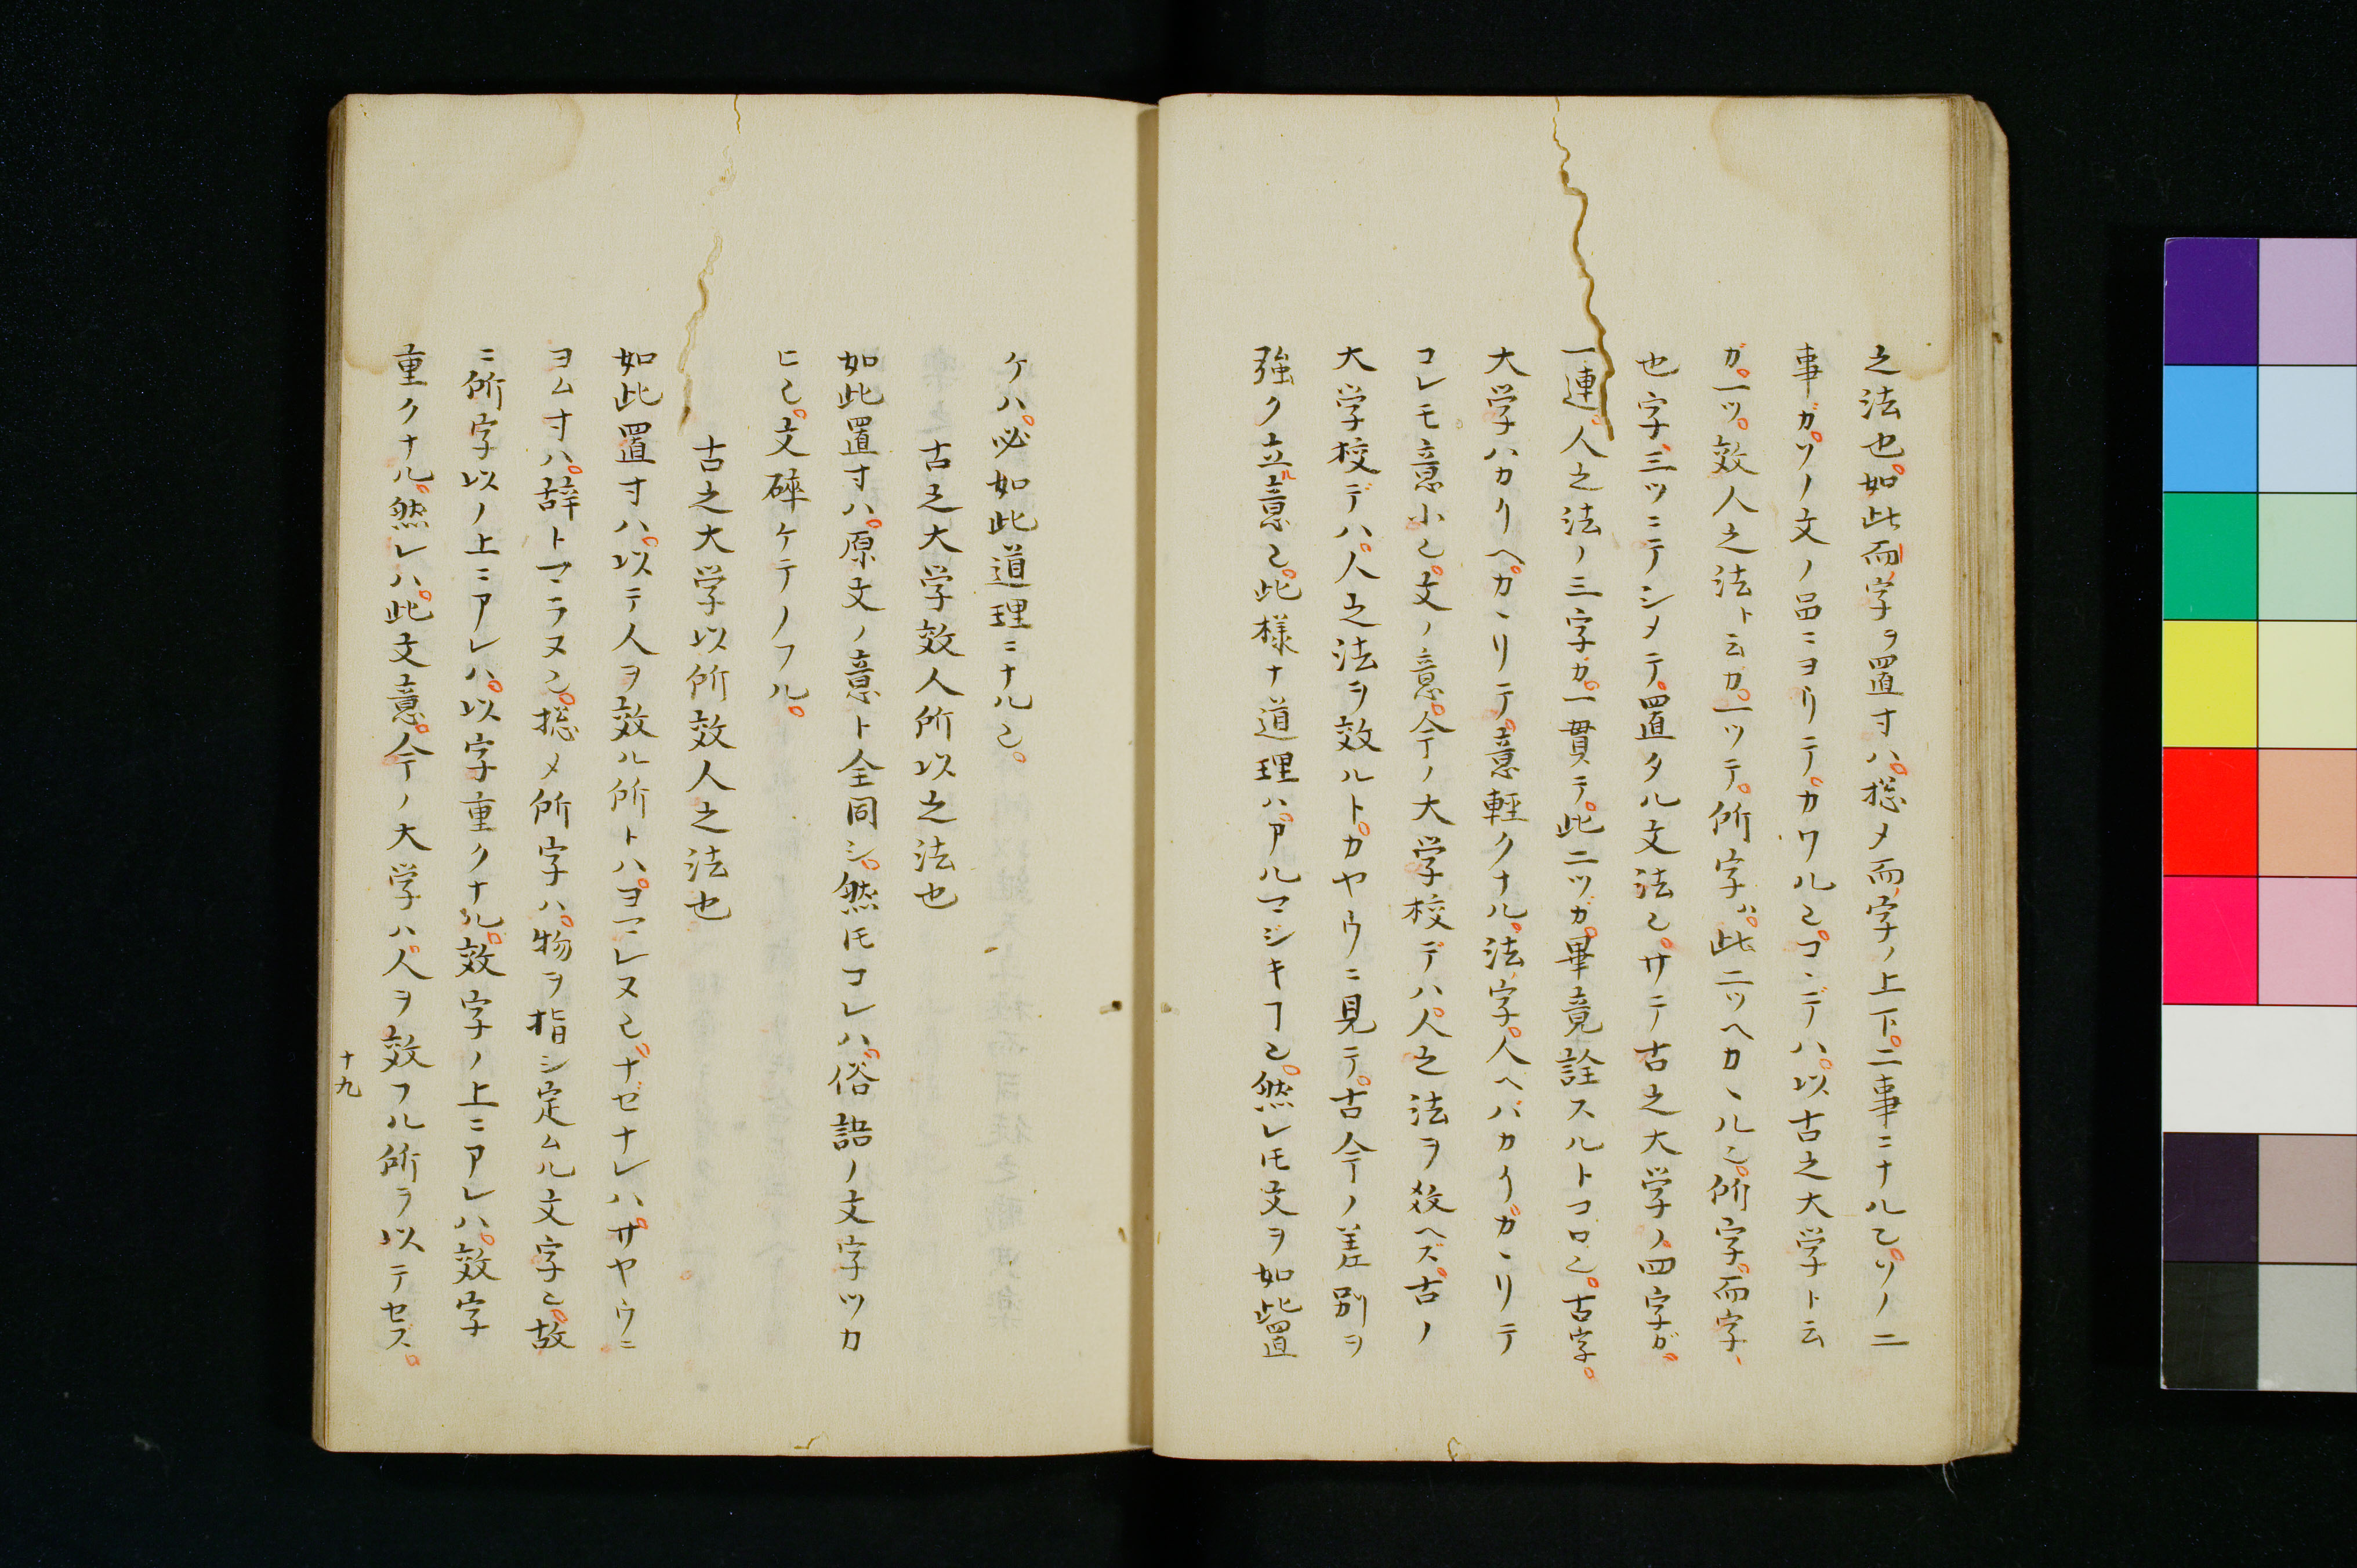 之法也。如此而字ヲ置寸ハ。揔メ而字ノ上下。二事ニナル乙。ソノ二
事ガ。ソノ文ノ品ニヨリテ。カワル乙。コヽデハ。以古之大学ト云
ガ。一ツ。效人之法ト云カ。一ツテ。所字ハ。此二ツヘカヽル乙。所字。而字、
也字、三ツニテシメテ。置タル文法乙。サテ古之大学ノ四字ガ。
一連。人之法ノ三字カ。一貫テ。此二ツカ。畢竟詮スルトコロ乙。古字。
大学ハカリヘ。カヽリテ。意軽クナル。法字。人ヘバカリガヽリテ
コレモ意小乙。文ノ意。今ノ大学校デハ。人之法ヲ教ヘズ。古ノ
大学校デハ。人之法ヲ效ルト。カヤウニ見テ。古今ノ差別ヲ
強ク立ル意乙。此様ナ道理ハ。アルマジキヿ乙。然レ𪜈文ヲ如此置
ケハ。必如此道理ニナル乙。
古之大学效人所以之法也
如此置寸ハ。原文ノ意ト全同シ。然𪜈コレハ。俗語ノ文字ツカ
ヒ乙。文砕ケテノフル。
古之大学以所效人之法也
如此置寸ハ。以テ人ヲ效ル所トハ。ヨマレヌ乙。ナゼナレハ。サヤウニ
ヨム寸ハ。辞トマラヌ乙。揔メ所字ハ。物ヲ指シ定ムル文字乙。故
ニ所字以ノ上ニアレハ。以字重クナル。效字ノ上ニアレハ。效字
重クナル。然レハ。此文意。今ノ大学ハ。人ヲ效フル所ヲ以テセズ。
十九